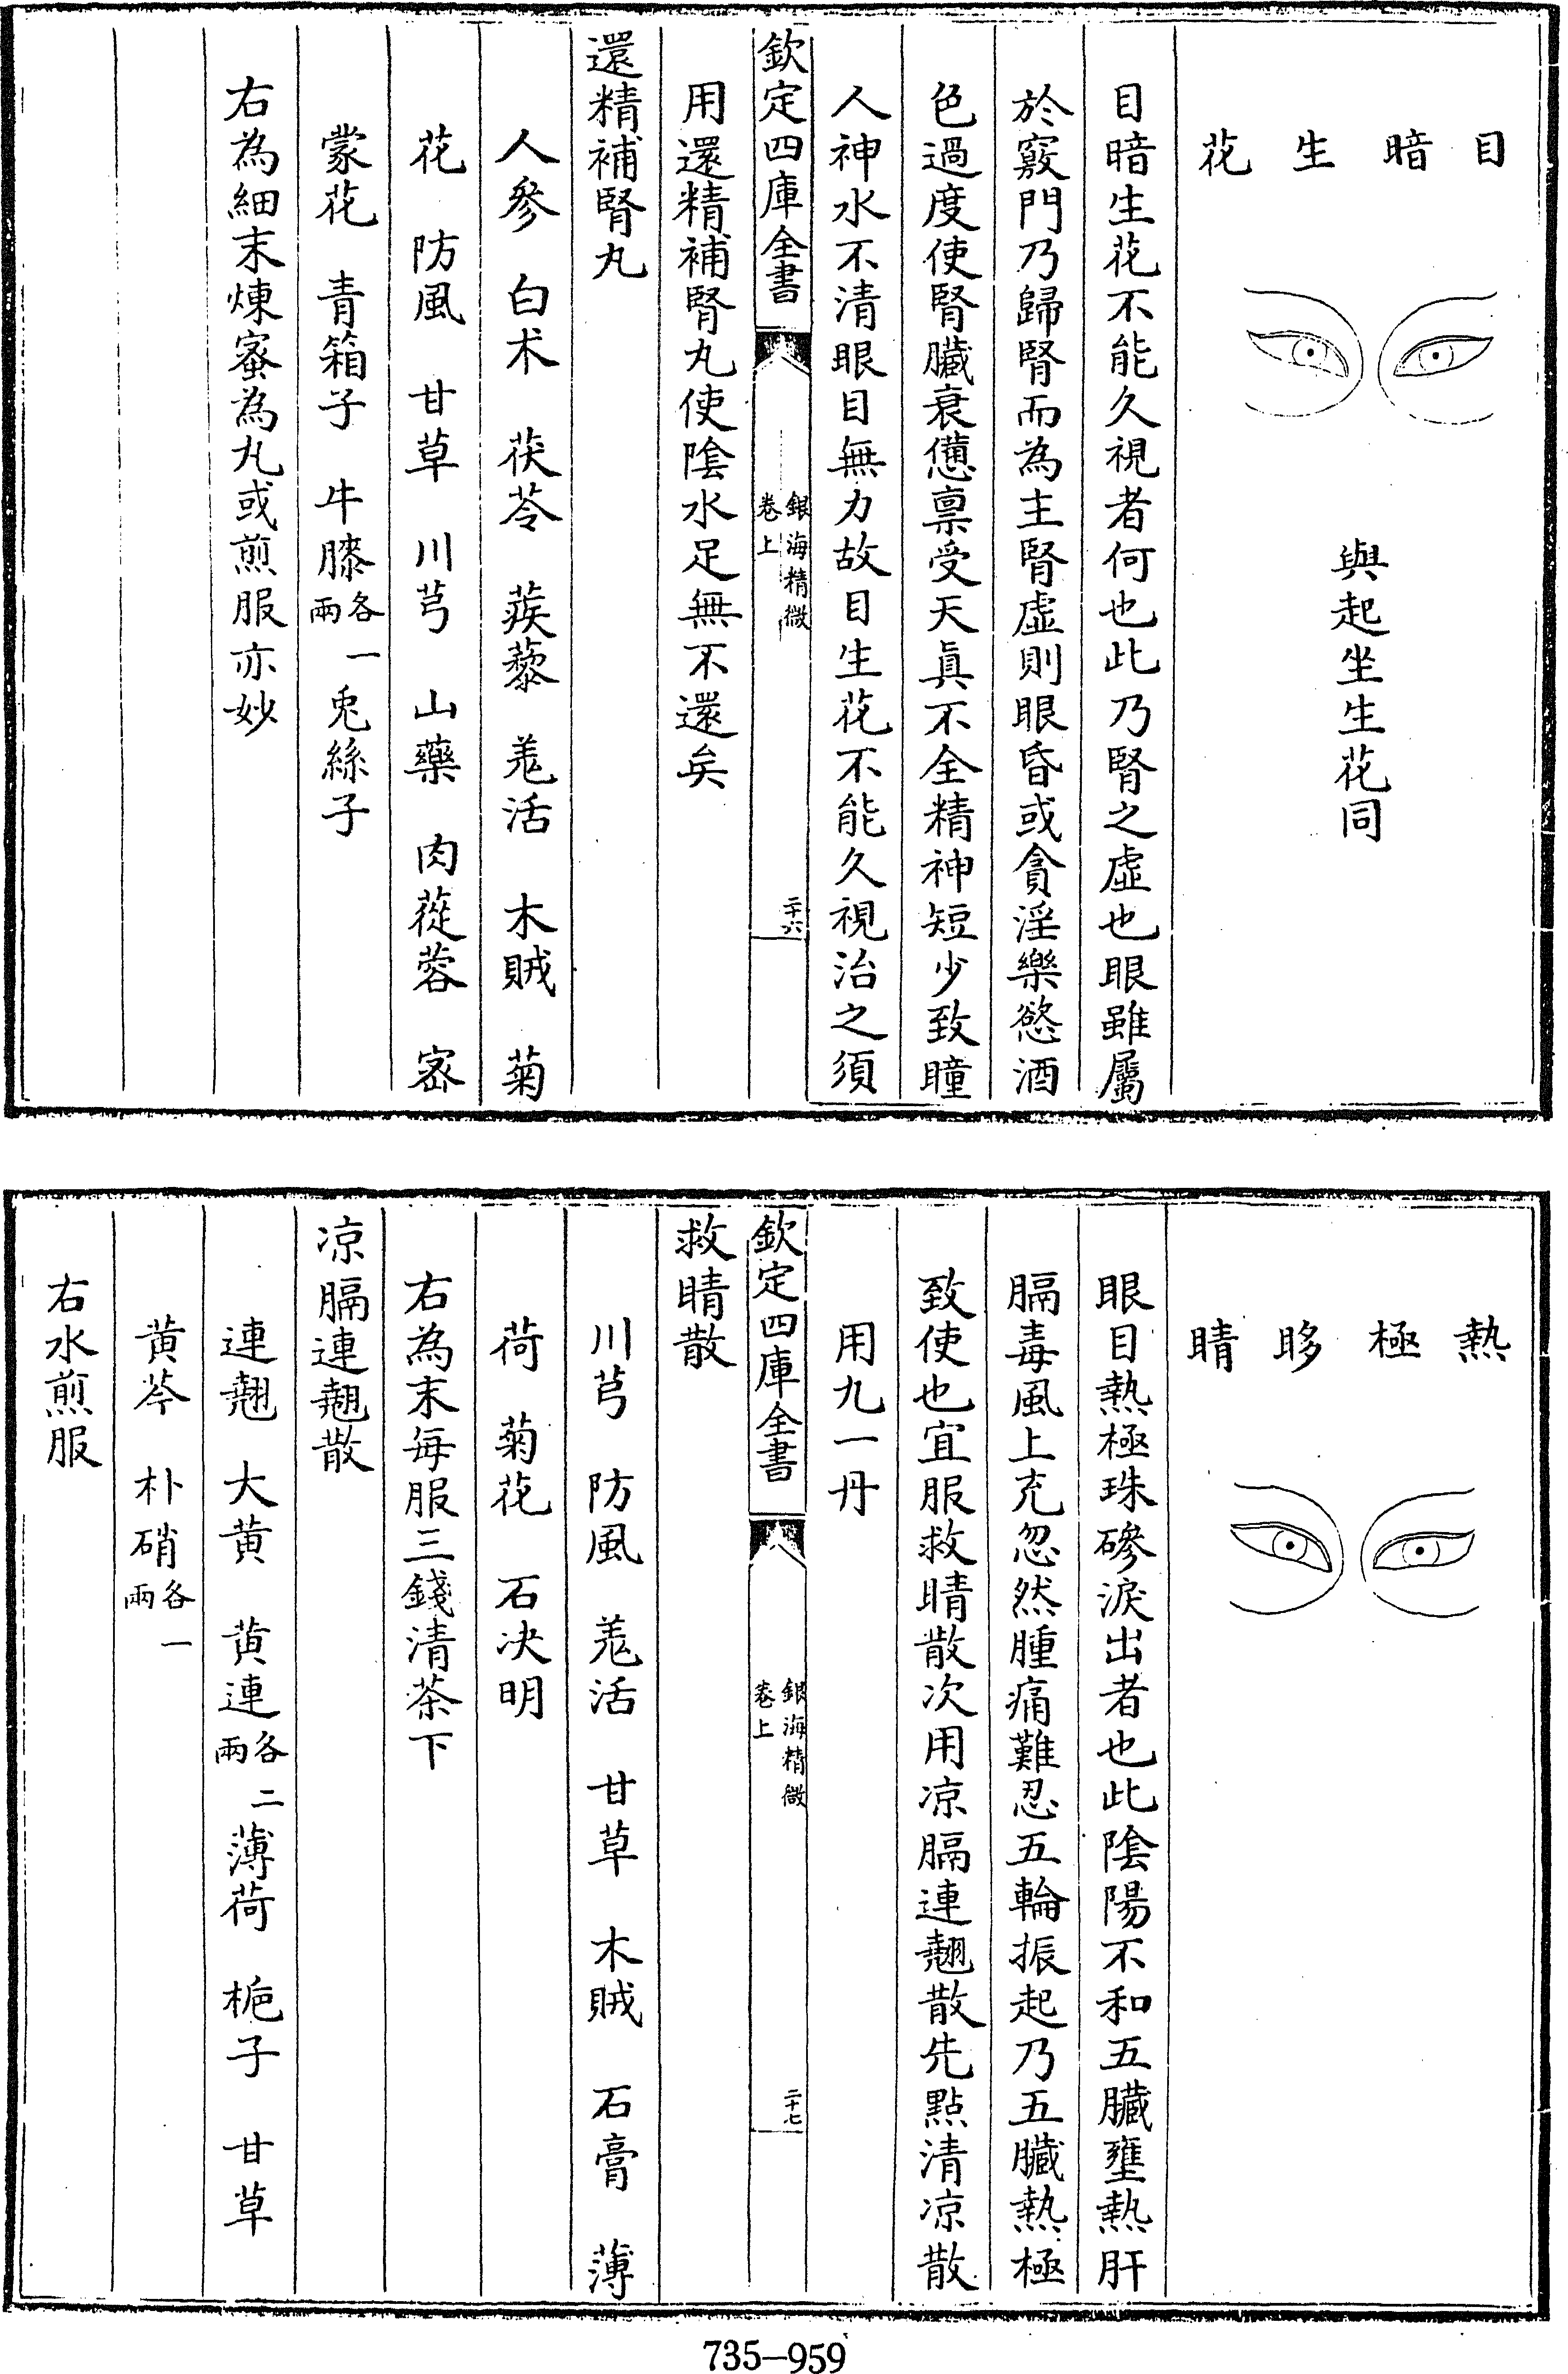 目暗生花
與起坐生花同
目暗生花不能久視者何也此乃腎之虛也眼雖屬
於竅門乃歸腎而為主腎虛則眼昏或貪淫樂慾酒
色過度使腎臟衰憊禀受天真不全精神短少致瞳
人神水不清眼目無力故目生花不能久視治之須
欽定四庫全書
銀海精微
卷上
二十六
用還精補腎丸使陰水足無不還矣
還精補腎丸
人參 白术 茯苓 蒺藜 羗活 木賊 菊
花 防風 甘草 川芎 山藥 肉蓯蓉 宻
蒙花 青箱子 牛膝各一兩 兎絲子
右為細末煉蜜為丸或煎服亦妙
熱極眵睛
眼目熱極珠磣淚出者也此陰陽不和五臟壅熱肝
膈毒風上充忽然腫痛難忍五輪振起乃五臟熱極
致使也宜服救睛散次用凉膈連翹散先㸃清凉散
用九一丹
欽定四庫全書
銀海精微
卷上
二十七
救睛散
川芎 防風 羗活 甘草 木賊 石膏 薄
荷 菊花 石决明
右為末每服三錢清茶下
凉膈連翹散
連翹 大黄 黄連各二兩 薄荷 梔子 甘草
黄芩 朴硝各一兩
右水煎服
735-959